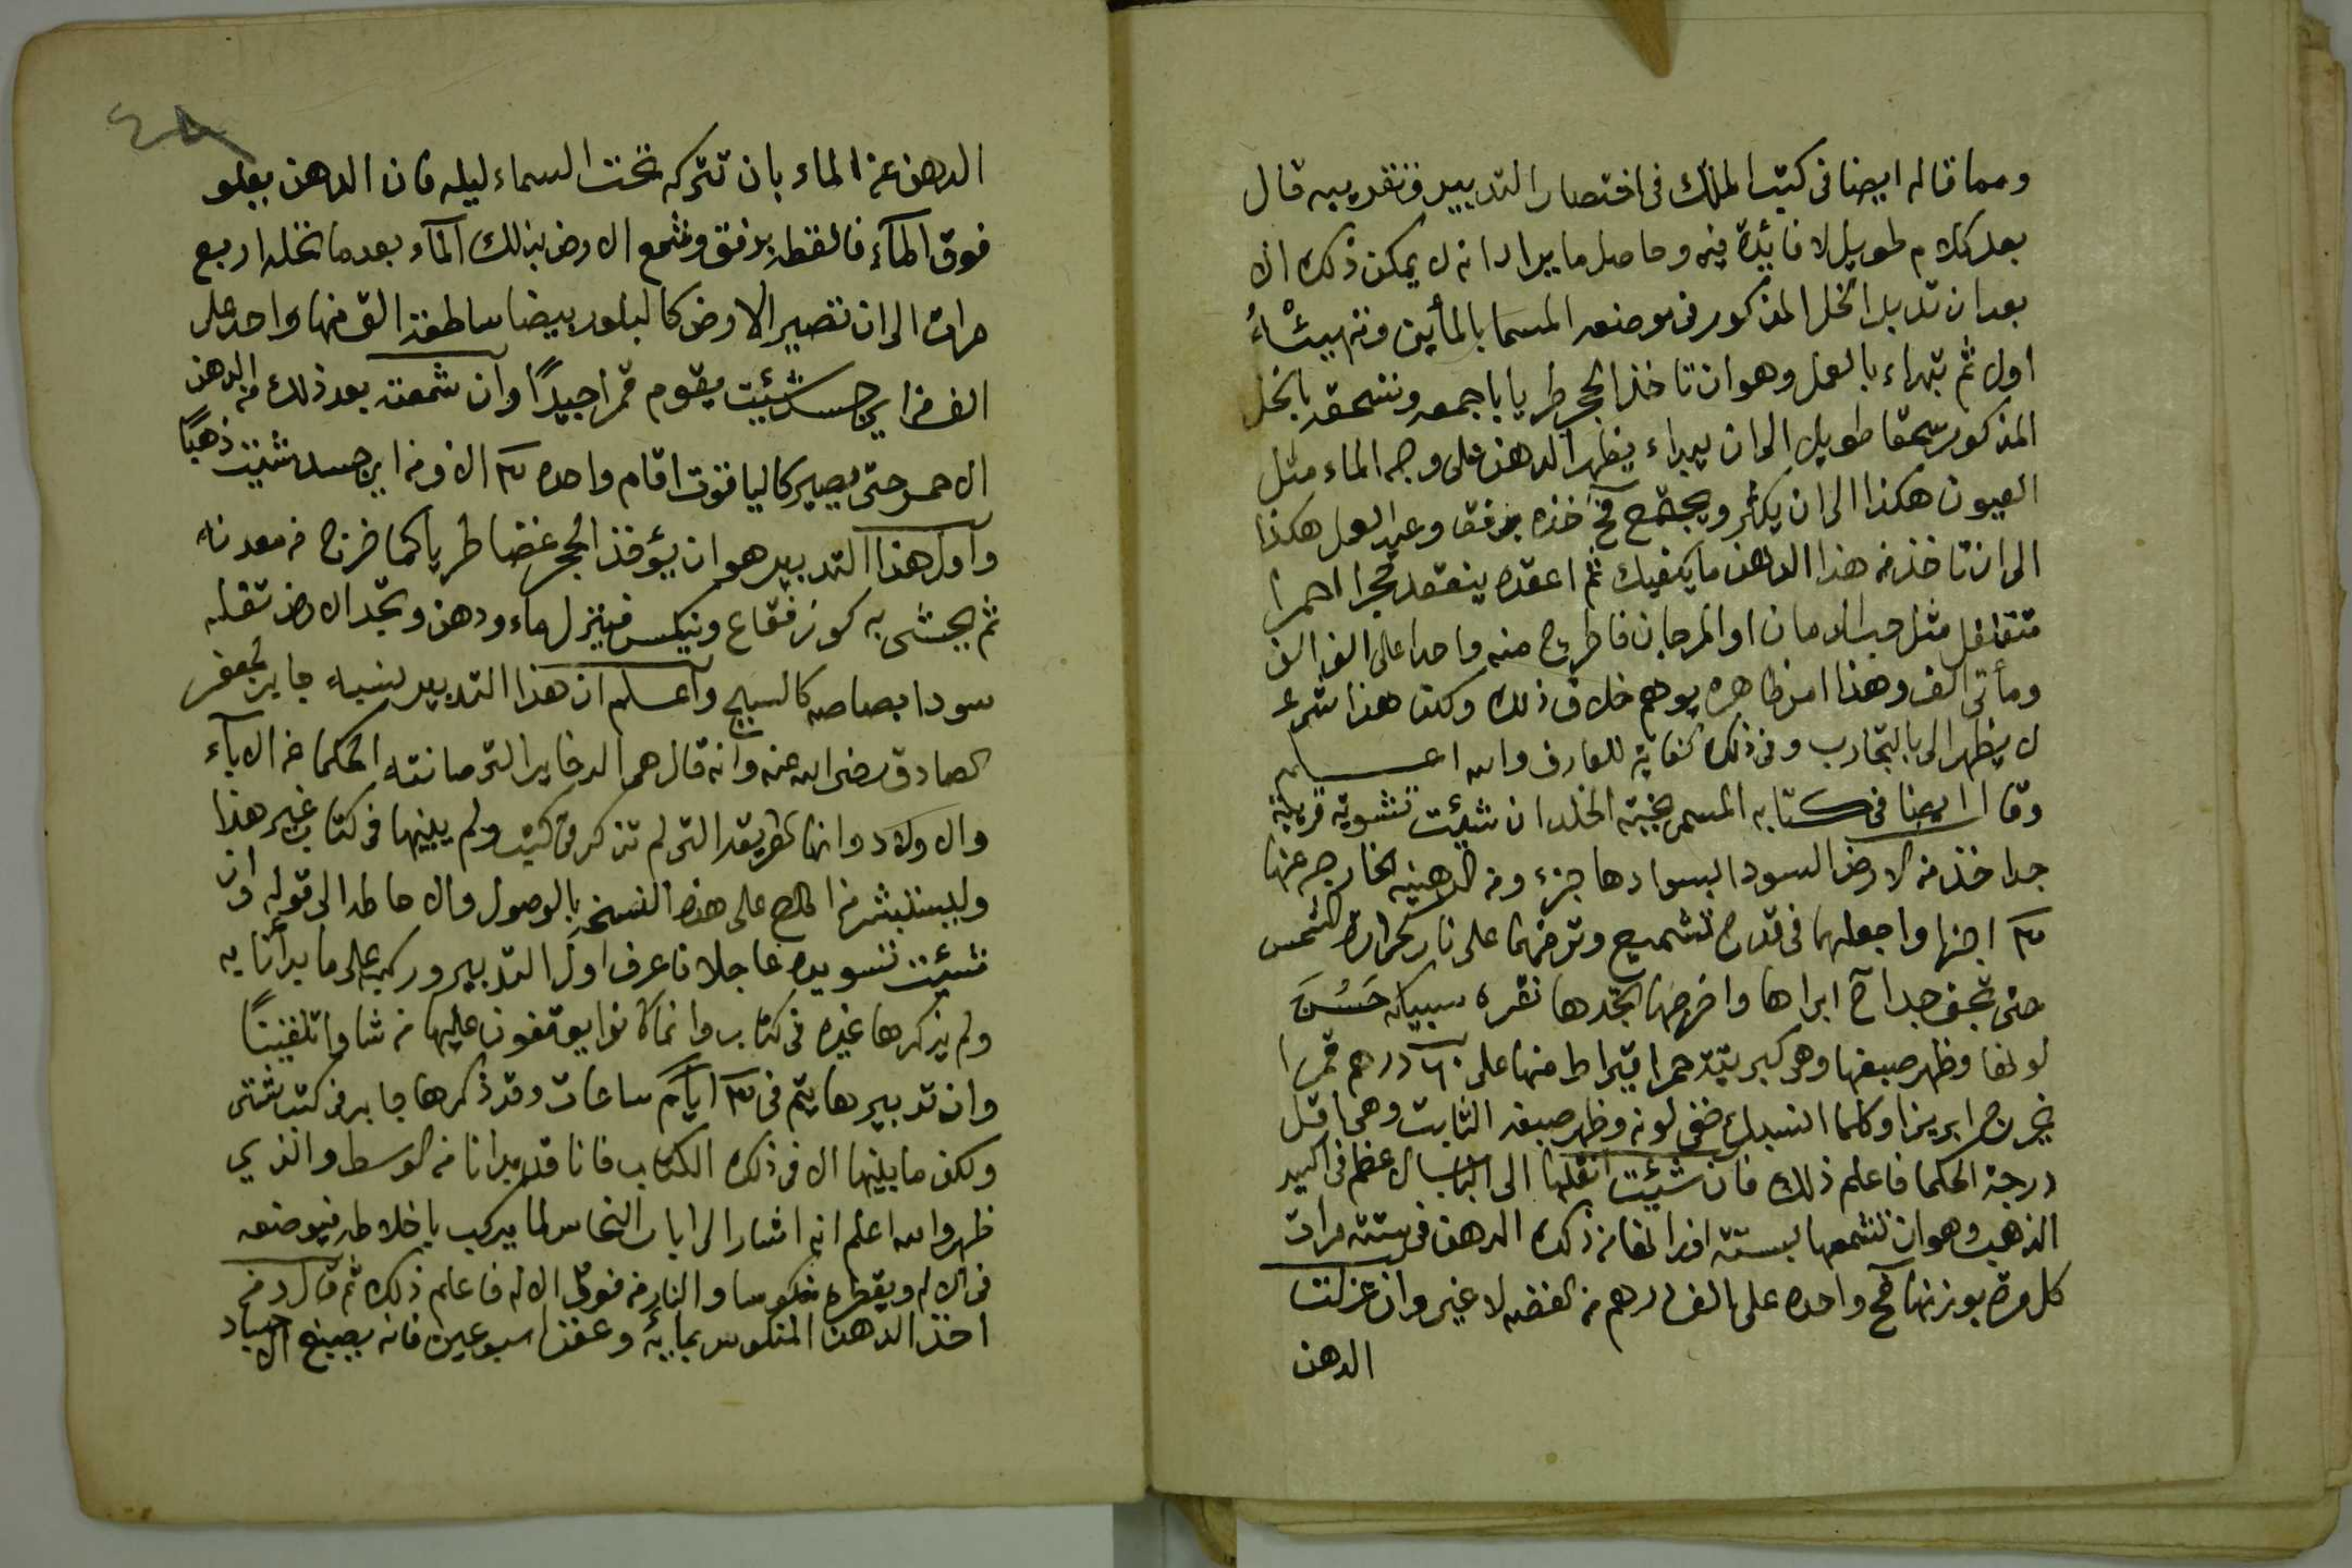 ومما قاله ايضا فى كتب الملك فى اختصار التدبير وتقريبه قال
بعد كلام طويل لا فائدة فيه وحاصل ما يراد انه لا يمكن ذلك الا
بعد ان تدبر الخل المذكور فى موضعه المسما بالمأين
اول ثم تبداء بالعمل وهو ان تاخذ الحجر طريا باجمعه وتسحقه بالخل
المذكور سحقا طويلا الى ان يبداء يظهر الدهن على وجه الماء مثل
العيون هكذا الى ان يكثر ويجتمع فح خذه برفق وعيد العمل هكذا
الى ان تاخذ من هذا الدهن ما يكفيك ثم اعقده ينعقد حجرا احمرا
مثل حب الرمان او المرجان فاطرح منه واحدا على الف الف
ومأتى الف وهذا امر ظاهره يوهم خلاف ذلك ولكن هذا شىء
لا يظهر الى بالتجارب وفى ذلك كفاية للعارف والله اعلم
وقال ايضا فى كتابه المسمى الخلد ان شئت تشويه قريبة
جدا خذ من الارض السودا بسوادها جزء ومن الدهنيه الخارجه عنها
٣ اجزا واجعلهما فى قدح تشميع وترضهما على نار كحرارة الشمس
حتى تجف جدا ابراها واخرجها تجدها نقره سبيكه حسن
لونها وظهر صبغها وهى كبريتة حمرا قيراط منها على ٦٠ درهم قمرا
يخرج ابريزا وكلما انسبك خفى لونه وظهر صبغه الثابت وهى اقل
درجة الحكما فاعلم ذلك فان شئت انقلها الى الباب الاعظم فى اكسير
الذهب وهو ان تشمعها بستة اوزانها من ذلك الدهن فى ستة مرات
كل مرة بوزنها فح واحده على الف درهم من الفضه لا غير وان عزلت
الدهن
الدهن عن الماء بان تتركه تحت السماء ليله فان الدهن يعلو
فوق المآء فالقطه برفق وشمع الارض بذلك المآء بعد ما تخله اربع
مرات الى ان تصير الارض كالبلور بيضا ساطعة الق منها واحد على
الف من اي جسد شئت يقوم قمرا جيدًا وان شمعته بعد ذلك من الدهن
الاحمر حتى يصير كالياقوت اقام واحده ٣ الاف من اي جسد شئت ذهبًا
واول هذا التدبير هو ان يؤخذ الحجر غضا طريا كما خرج من معدنه
ثم يحشى به كوز فقاع وينكس فينزل ماء ودهن وتجد الارض ثقله
سودا بصاصه كالسبج واعلم ان هذا التدبير نسبه جابر لجعفر
الصادق رضى الله عنه وانه قال هى الدخاير التى صانته الحكما من الآباء
والاولاد وانها الطريقه التى لم تذكر فى كتب ولم يبينها فى كتاب غير هذا
وليستبشر من اطلع على هذه النسخه بالوصول والاحاطه الى قوله وان
شئت تسويده عاجلا فاعرف اول التدبير وركبه على ما بدأنا به
ولم يذكرها غيره فى كتاب وانما كانوا يوقفون عليها من شاوا تلقينًا
وان تدبيرها يتم فى ٣ ايام ساعات وقد ذكرها جابر فى كتب شتى
ولكن ما بينها الا فى ذلك الكتاب فانا قد بدانا من الوسط والذي
ظهر والله اعلم انه اشار الى ابار النحاس لما يركب باخلاطه فيوضعه
فى الاله ويقطره منكوسا والنار من فوق الاله فاعلم ذلك ثم قال ومن
اخذ الدهن المنكوس بمايه وعفنه اسبوعين فانه يصبغ الاجساد